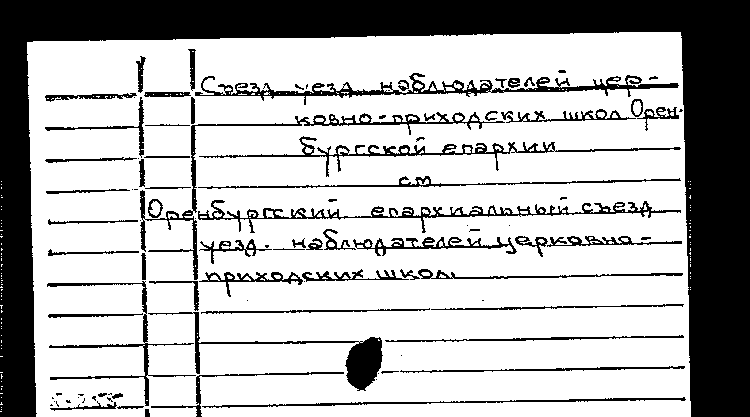 Съезд уезд. наблюдателей цер-
ковно-приходских школ Орен-
бургской епархии
см.
Оренбургский епархиальный съезд
уезд. наблюдателей церковно-
приходских школ.